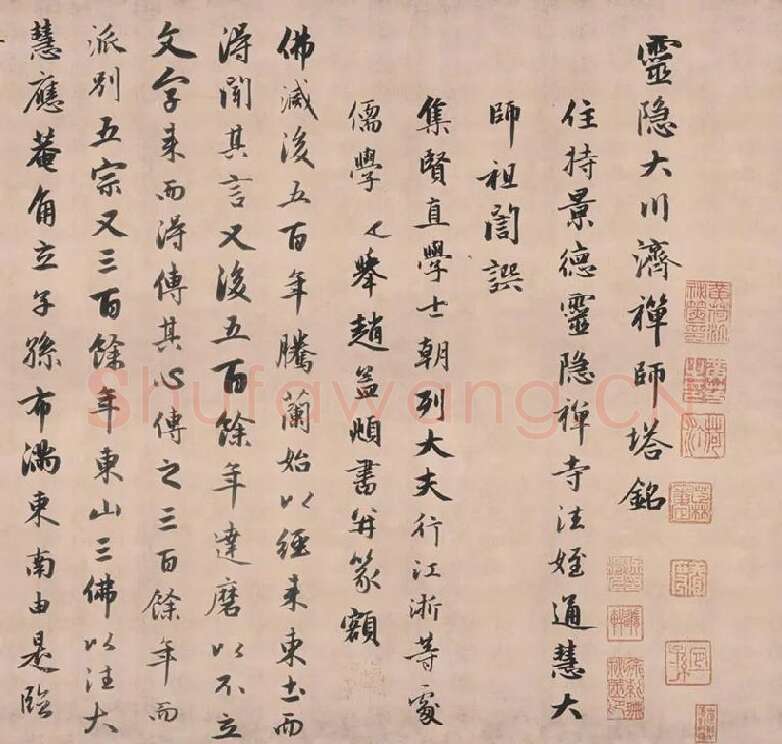 靈隐大川濟禪師塔銘
住持景德靈隐禪寺法姪通慧大
師祖誾譔
集賢直學士朝列大夫行江浙等處
儒學提舉趙孟頫書并篆額
佛滅後五百年騰蘭始以經来東土而
得聞其言又後五百餘年達磨以不立
文字来而得傳其心傳之三百餘年而
派别五宗又三百餘年東山三佛以法大
慧應菴角立子孫布滿東南由是臨
Shufawang.CN